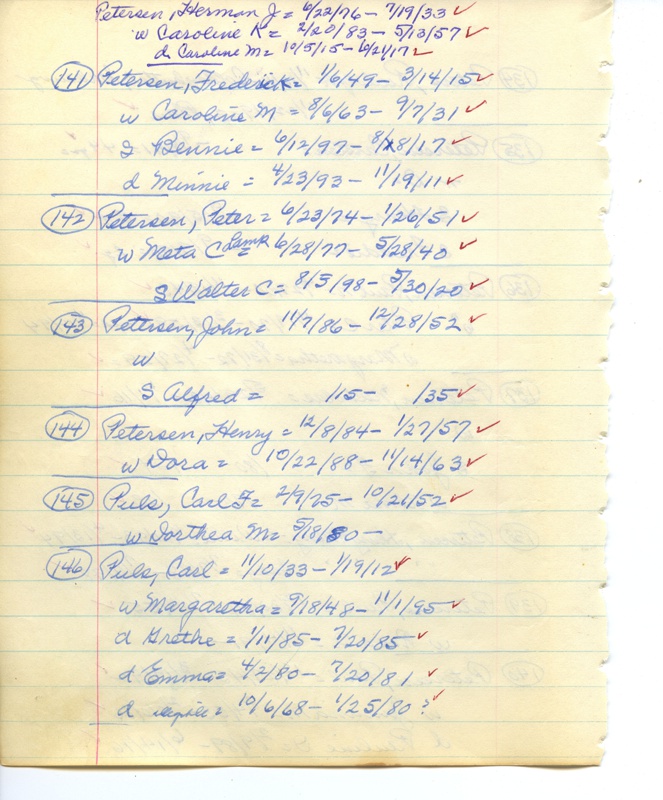 Petersen, Herman J = 6/22/76 - 7/19/33 ✓
w Caroline K = 2/20/83 - 5/13/57 ✓
d Caroline M = 10/5/15 - 6/21/17 ✓
141 Petersen, Frederick = 1/6/49 - 3/14/15 ✓
w Caroline M = 8/6/63 - 9/7/31 ✓
S Bennie = 6/12/97 - 8/8/17 ✓
d Minnie = 4/23/93 - 11/19/11 ✓
142 Petersen, Peter = 6/23/74 - 1/26/51 ✓
w Meta C Lamp = 6/28/77 - 5/28/40 ✓
S Walter C = 8/5/98 - 5/30/20 ✓
143 Petersen, John = 11/7/86 - 12/28/52 ✓
w
S Alfred = /15 - /35 ✓
144 Petersen, Henry = 12/8/84 - 1/27/57 ✓
w Dora = 10/22/88 - 11/14/63 ✓
145 Puls, Carl F = 2/9/75 - 10/21/52 ✓
w Dorthea M = 5/18/80 -
146 Puls, Carl = 11/10/33 - 1/19/12 ✓
w Margaretha = 9/18/48 - 11/1/95 ✓
d Grethe = 1/11/85 - 7/20/85 ✓
d Emma = 4/2/80 - 7/20/81 ✓
d = 10/6/68 - 1/25/80 ? ✓